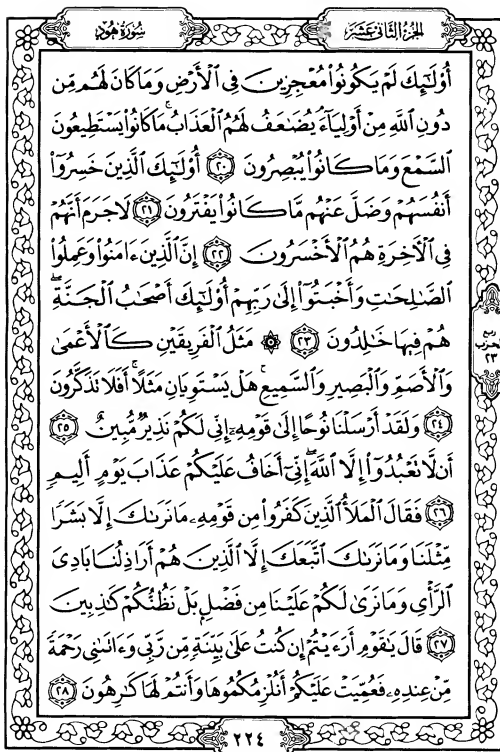 الجزء الثاني عشر
سورة هود
أُوْلَٰٓئِكَ لَمْ يَكُونُوا۟ مُعْجِزِينَ فِى ٱلْأَرْضِ وَمَا كَانَ لَهُم مِّن
دُونِ ٱللَّهِ مِنْ أَوْلِيَآءَ ۘ يُضَٰعَفُ لَهُمُ ٱلْعَذَابُ ۚ مَا كَانُوا۟ يَسْتَطِيعُونَ
ٱلسَّمْعَ وَمَا كَانُوا۟ يُبْصِرُونَ ٢٠ أُوْلَٰٓئِكَ ٱلَّذِينَ خَسِرُوٓا۟
أَنفُسَهُمْ وَضَلَّ عَنْهُم مَّا كَانُوا۟ يَفْتَرُونَ ٢١ لَا جَرَمَ أَنَّهُمْ
فِى ٱلْءَاخِرَةِ هُمُ ٱلْأَخْسَرُونَ ٢٢ إِنَّ ٱلَّذِينَ ءَامَنُوا۟ وَعَمِلُوا۟
ٱلصَّٰلِحَٰتِ وَأَخْبَتُوٓا۟ إِلَىٰ رَبِّهِمْ أُوْلَٰٓئِكَ أَصْحَٰبُ ٱلْجَنَّةِ ۖ
هُمْ فِيهَا خَٰلِدُونَ ٢٣ ۞ مَثَلُ ٱلْفَرِيقَيْنِ كَٱلْأَعْمَىٰ
وَٱلْأَصَمِّ وَٱلْبَصِيرِ وَٱلسَّمِيعِ ۚ هَلْ يَسْتَوِيَانِ مَثَلًا ۚ أَفَلَا تَذَكَّرُونَ
٢٤ وَلَقَدْ أَرْسَلْنَا نُوحًا إِلَىٰ قَوْمِهِۦٓ إِنِّى لَكُمْ نَذِيرٌ مُّبِينٌ ٢٥
أَن لَّا تَعْبُدُوٓا۟ إِلَّا ٱللَّهَ ۖ إِنِّىٓ أَخَافُ عَلَيْكُمْ عَذَابَ يَوْمٍ أَلِيمٍ
٢٦ فَقَالَ ٱلْمَلَأُ ٱلَّذِينَ كَفَرُوا۟ مِن قَوْمِهِۦ مَا نَرَىٰكَ إِلَّا بَشَرًا
مِّثْلَنَا وَمَا نَرَىٰكَ ٱتَّبَعَكَ إِلَّا ٱلَّذِينَ هُمْ أَرَاذِلُنَا بَادِىَ
ٱلرَّأْىِ وَمَا نَرَىٰ لَكُمْ عَلَيْنَا مِن فَضْلٍۭ بَلْ نَظُنُّكُمْ كَٰذِبِينَ
٢٧ قَالَ يَٰقَوْمِ أَرَءَيْتُمْ إِن كُنتُ عَلَىٰ بَيِّنَةٍ مِّن رَّبِّى وَءَاتَىٰنِى رَحْمَةً
مِّنْ عِندِهِۦ فَعُمِّيَتْ عَلَيْكُمْ أَنُلْزِمُكُمُوهَا وَأَنتُمْ لَهَا كَٰرِهُونَ ٢٨
ربع
الحزب
٢٣
٢٢٤